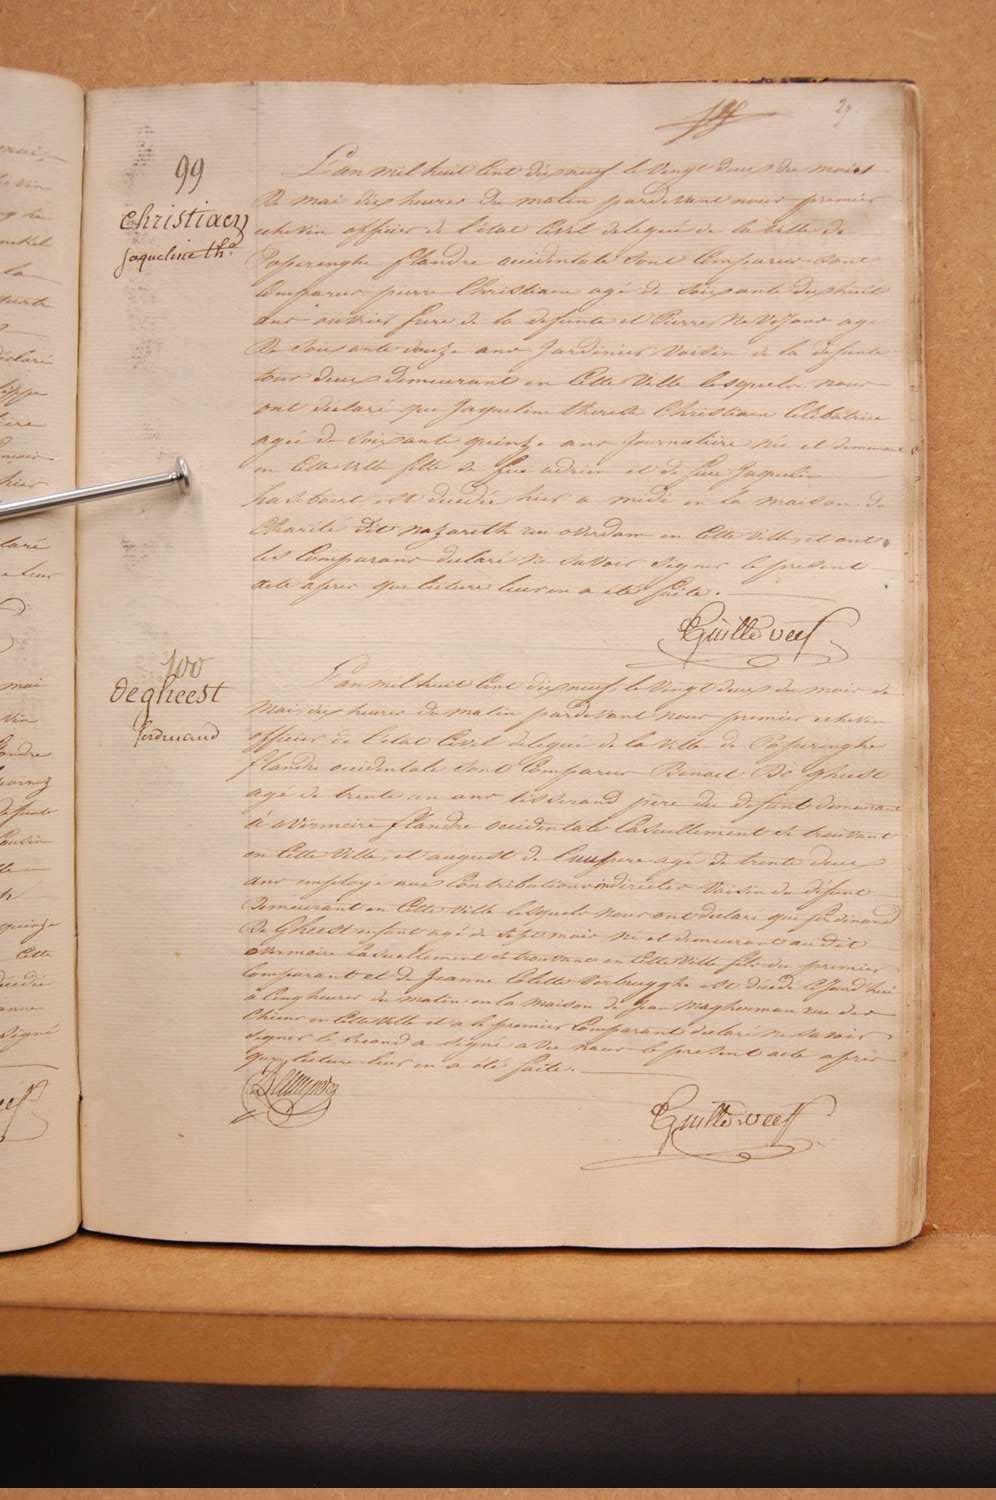 29
99
Christiaen
Jaqueline Th.ª
L'an mil huit cent dixneuf le vingt deux du mois
de mai dix heures du matin pardevant nous premier
echevin officier de l'etat civil delegué de la ville de
Poperinghe flandre occidentale sont comparus sont
comparus pierre Christiaen agé de soixante dix huit
ans ouvrier frere de la defunte et Pierre agé
de soixante douze ans Jardinier Voisin de la defunte
tous deux demeurant en cette Ville lesquels nous
ont declaré que Jaqueline therese Christiaen Celibatrice
agée de soixante quinze ans Journaliere née et demeurant
en cette ville fille de feu adrien et de feue Jaqueline
est decedée hier a midi en la maison de
Charité dit Nazareth rue overdam en cette ville, et ont
les Comparans declaré ne savoir signer le present
acte apres que lecture leur en a été faite.
100
Degheest
ferdinand
L'an mil huit cent dixneuf le vingt deux du mois de
Mai, dix heures du matin pardevant nous premier echevin
officier de l'etat Civil delegué de la Ville de Poperinghe
flandre occidentale sont Comparus Benoit De Gheest
agé de trente un ans tisserand père du defunt demeurant
à flandre occidentale Casuellement se trouvant
en cette Ville, et august de agé de trente deux
ans employé aux Contributions indirectes Voisin du défunt
Demeurant en cette Ville lesquels nous ont declaré que ferdinand
De Gheest enfant agé de sept mois né et demeurant au dit
Casuellement se trouvant en cette Ville fils du premier
Comparant et de Jeanne Colette Verbrugghe est decedé Ce Jourd'hui
à cinq heures du matin en la maison de Jean Magherman rue des
Chiens en cette Ville et a le premier Comparant declaré ne savoir
signer le second a signé avec nous le present acte après
que lecture leur en a été faite.